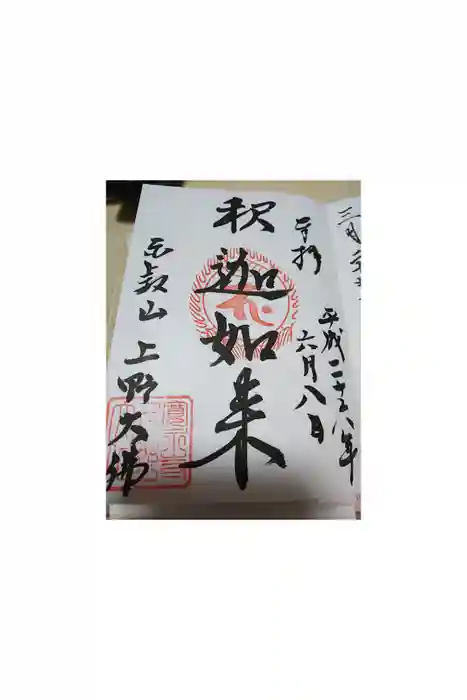 奉拝
平成二十八年
六月八日
釈迦如来
東叡山 上野大佛